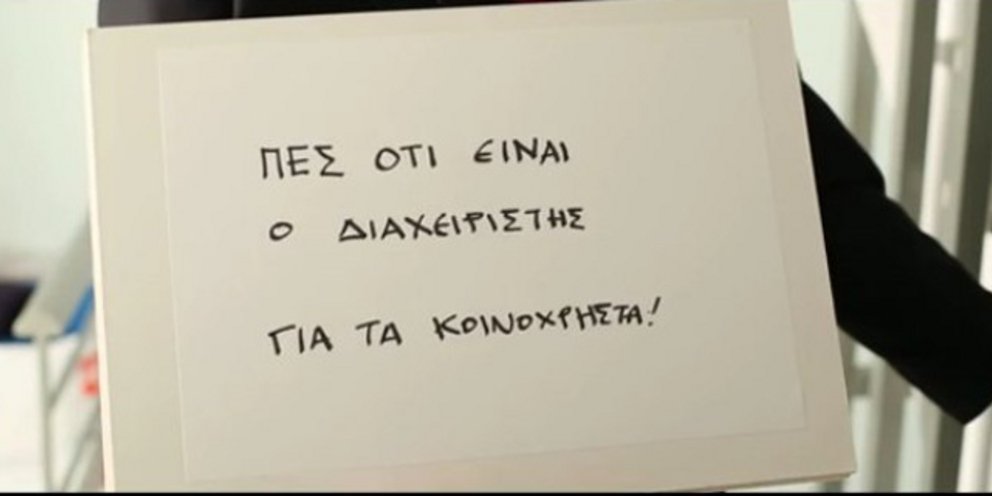 ΠΕΣ ΟΤΙ ΕΙΝΑΙ
Ο ΔΙΑΧΕΙΡΙΣΤΗΣ
ΓΙΑ ΤΑ ΚΟΙΝΟΧΡΗΣΤΑ!